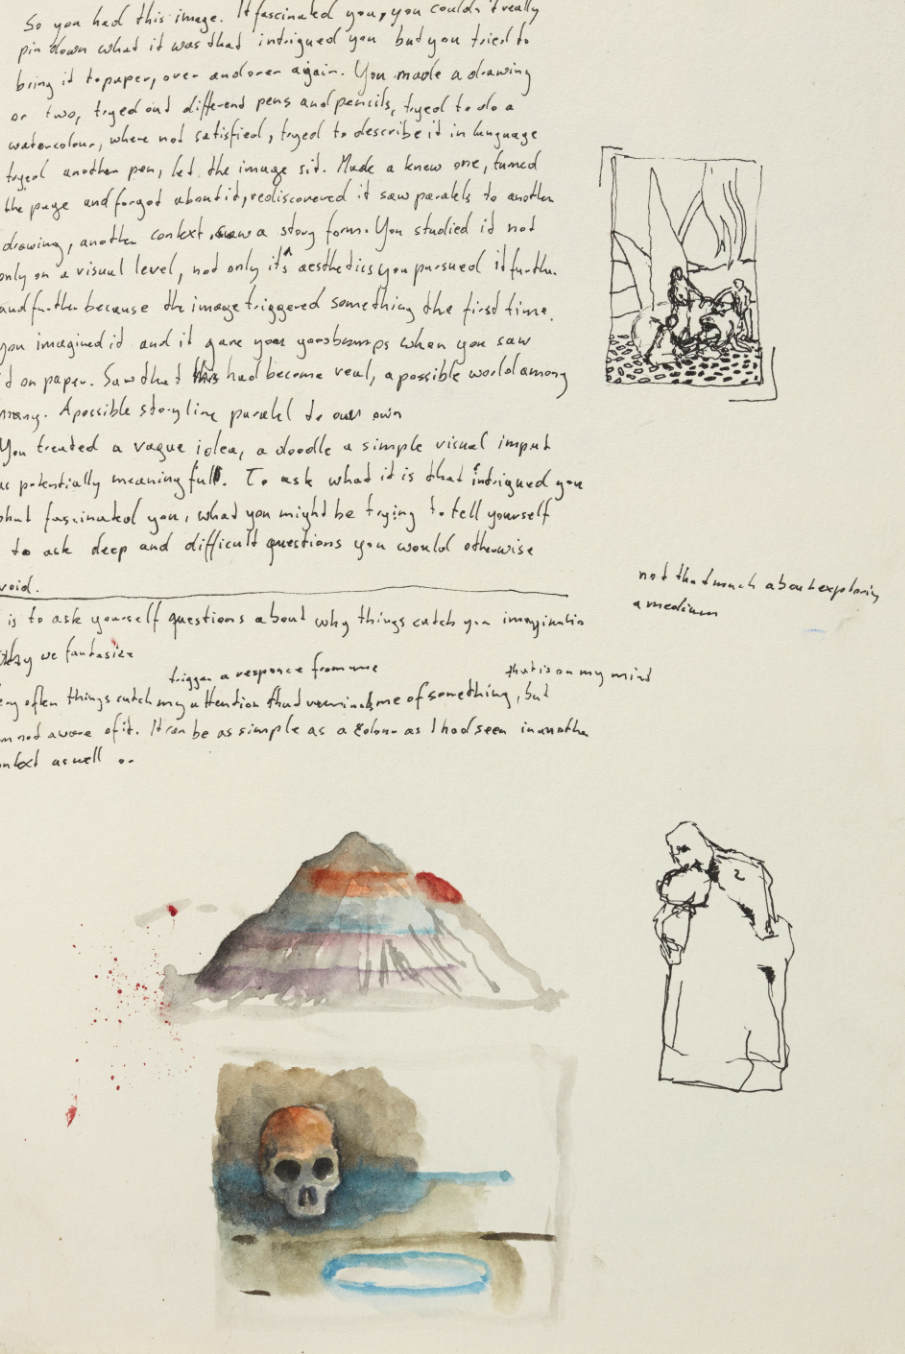 So you had this image. It fascinated you, you couldn't really
pin down what it was that intrigued you but you tried to
bring it to paper, over and over again. You made a drawing
or two, tryed out different pens and pencils, tryed to do a
watercolour, where not satisfied, tryed to describe it in language
tryed another pen, let the image sit. Made a knew one, turned
the page and forgot about it, rediscovered it saw paralels to another
drawing, another context, saw a story form. You studied it not
only on a visual level, not only it's aesthetics you pursued it further
and further because the image triggered something the first time.
you imagined it and it gave you goosbumps when you saw
it on paper. Saw that this had become real, a possible world among
many. A possible story line paralel to our own
You treated a vague idea, a doodle a simple visual imput
as potentially meaningfull. To ask what it is that intrigued you
what fascinated you, what you might be trying to tell yourself
to ask deep and difficult questions you would otherwise
avoid.
not that much about exploring
a medium
is to ask yourself questions about why things catch you imagination
why we fantasize
trigger a responce from me
that is on my mind
very often things catch my attention that remind me of something, but
am not aware of it. It can be as simple as a colour as I had seen in another
context as well ..
2